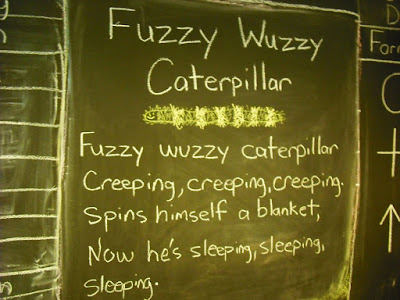 Fuzzy Wuzzy
Caterpillar
Fuzzy wuzzy caterpillar
Creeping, creeping, creeping.
Spins himself a blanket,
Now he's sleeping, sleeping,
sleeping.